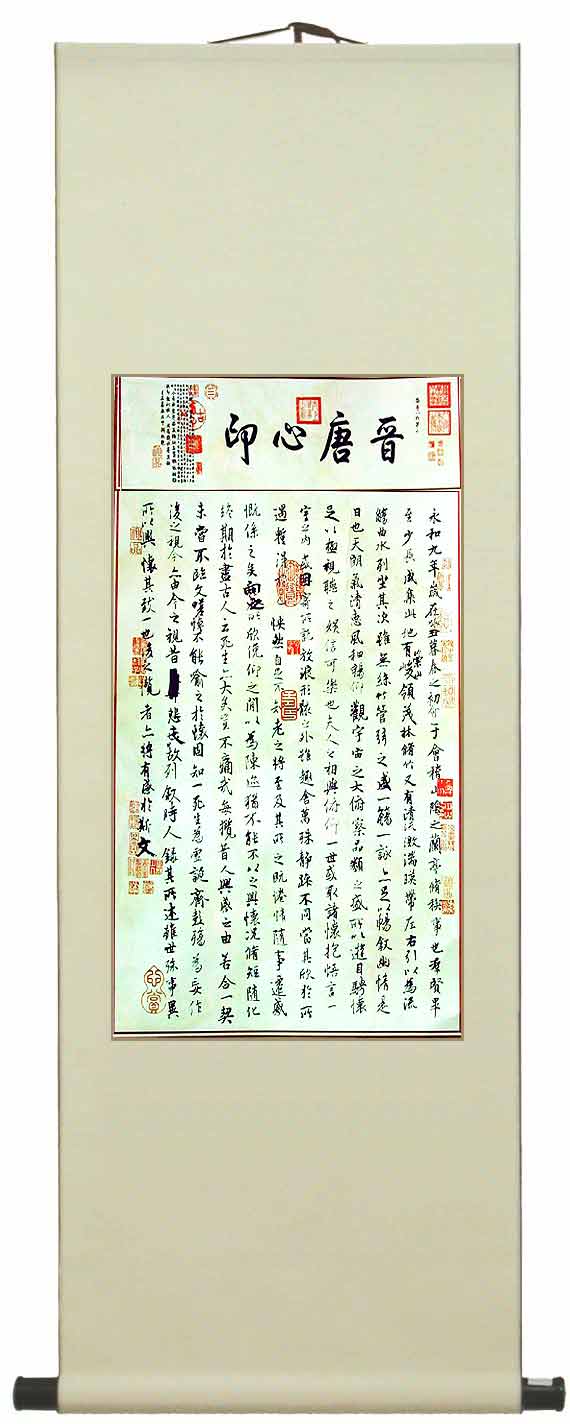 晉唐心印
永和九年歲在癸丑暮春之初會于會稽山陰之蘭亭脩稧事也羣賢畢
至少長咸集此地有崇山峻領茂林脩竹又有清流激湍暎帶左右引以為流
觴曲水列坐其次雖無絲竹管弦之盛一觴一詠亦足以暢敘幽情是
日也天朗氣清惠風和暢仰觀宇宙之大俯察品類之盛所以遊目騁懷
足以極視聽之娛信可樂也夫人之相與俯仰一世或取諸懷抱悟言一
室之內或因寄所託放浪形骸之外雖趣舍萬殊靜躁不同當其欣於所
遇暫得於怏然自足不知老之將至及其所之既惓情隨事遷感
慨係之矣向之所欣俛仰之間以為陳迹猶不能不以之興懷況脩短隨化
終期於盡古人云死生亦大矣豈不痛哉每攬昔人興感之由若合一契
未嘗不臨文嗟悼不能喻之於懷固知一死生為虛誕齊彭殤為妄作
後之視今亦由今之視昔悲夫故列敘時人錄其所述雖世殊事異
所以興懷其致一也後之攬者亦將有感於斯文